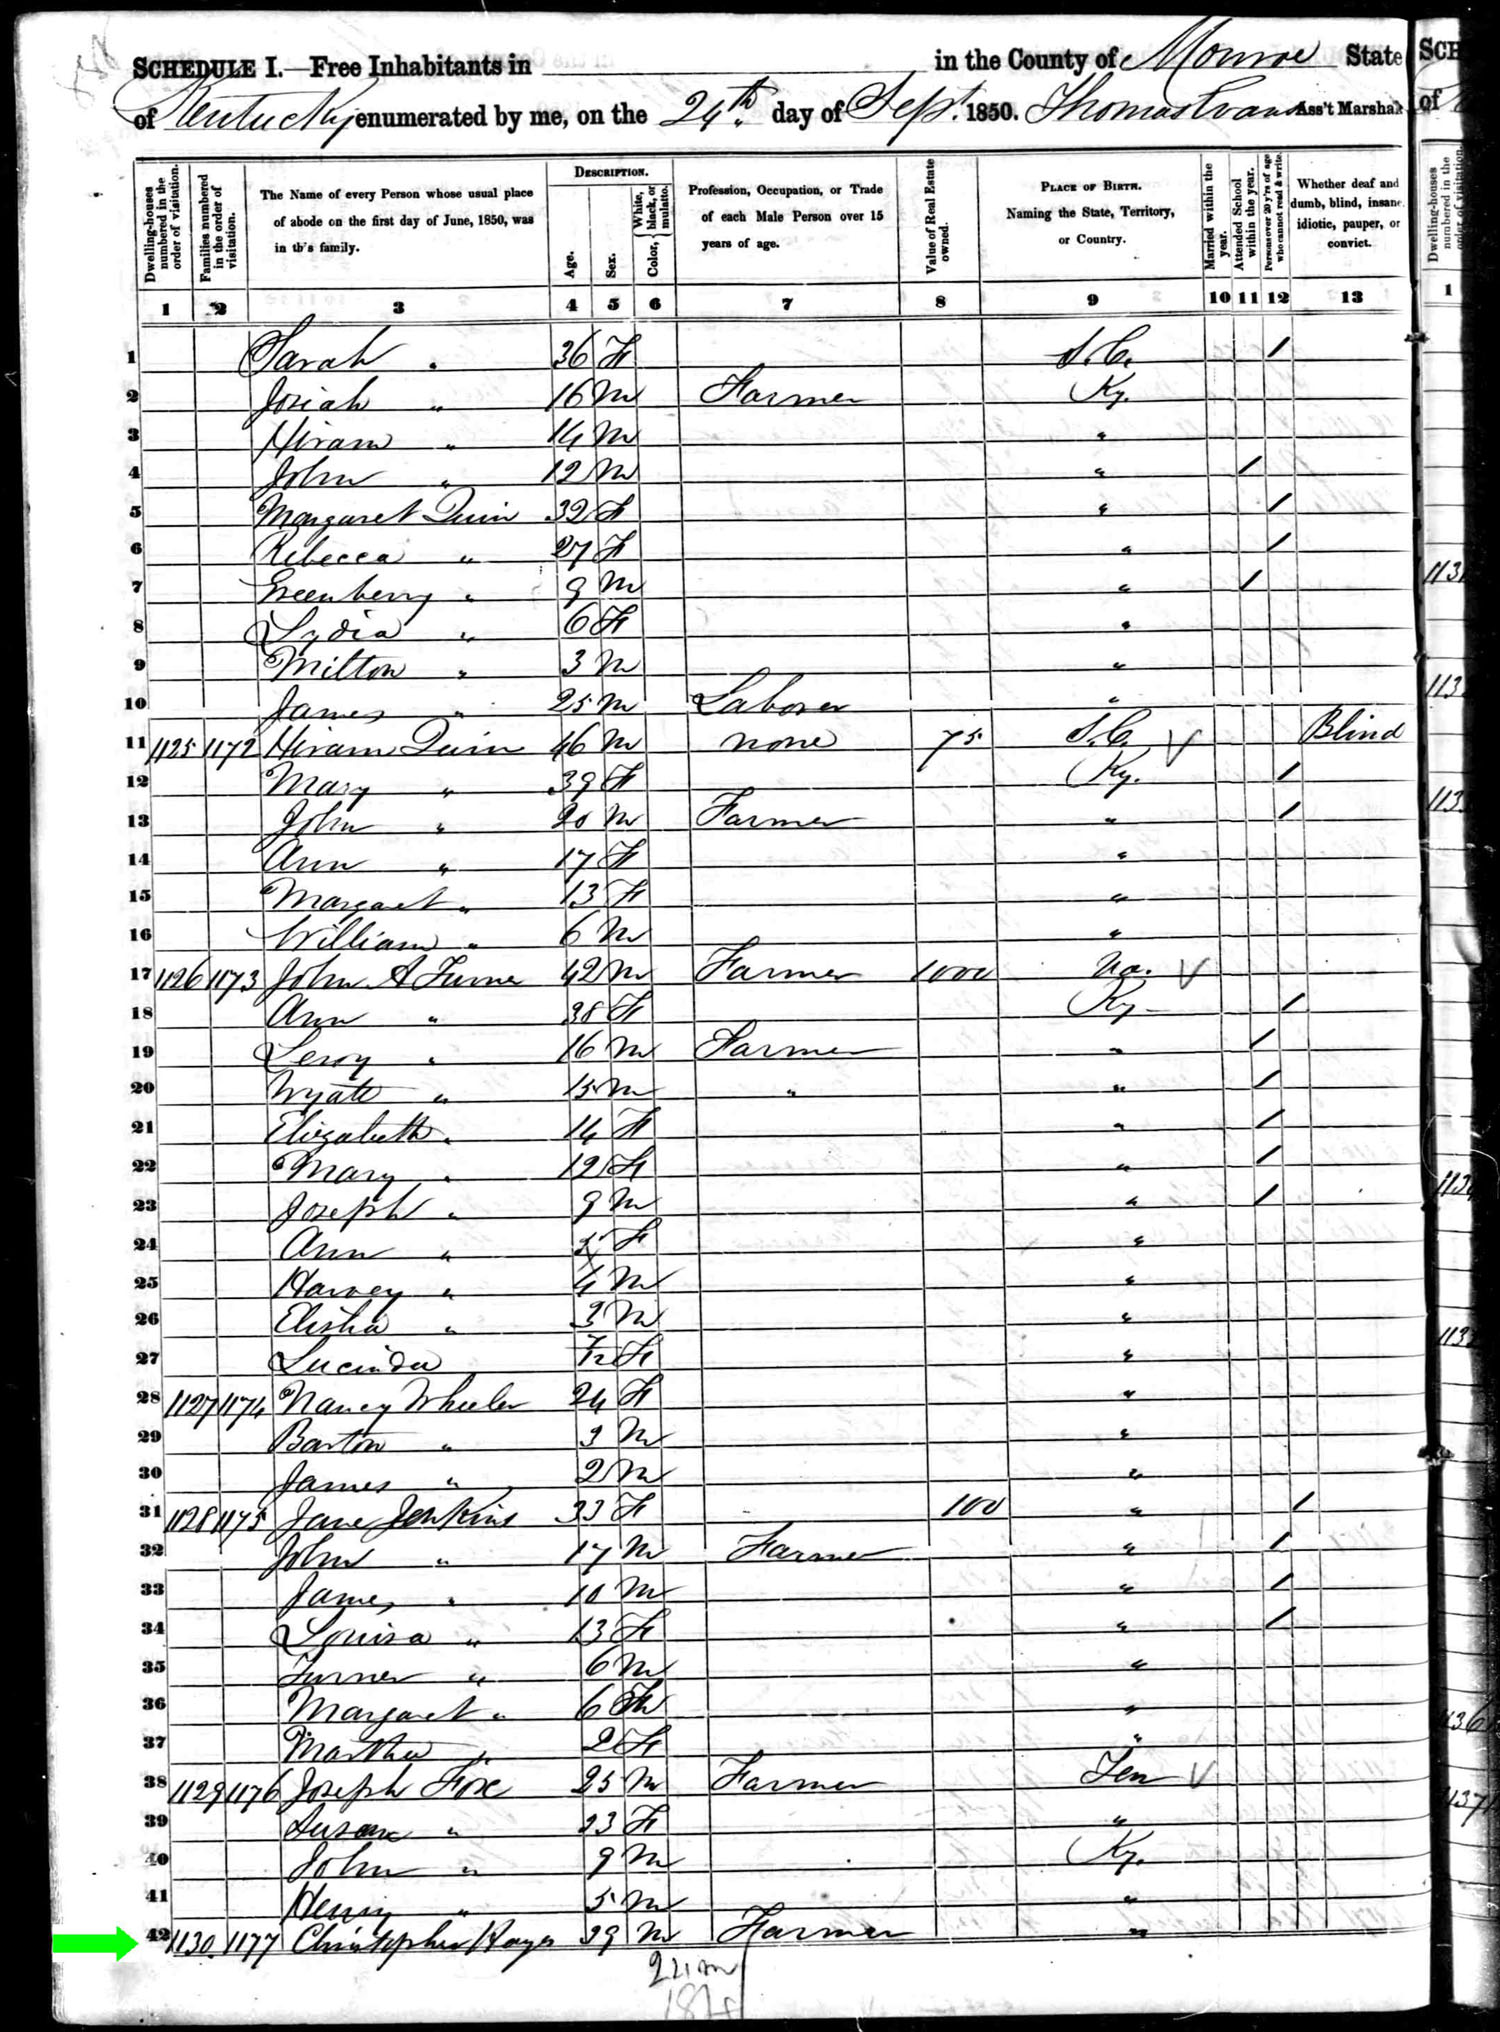 SCHEDULE I.—Free Inhabitants in in the County of Monroe State
of Kentucky enumerated by me, on the 24th day of Sept. 1850. Thomas Evans Ass't Marshal
Dwelling-houses numbered in the order of visitation.
Families numbered in the order of visitation.
The Name of every Person whose usual place of abode on the first day of June, 1850, was in th's family.
DESCRIPTION.
Age.
Sex.
Color, White, black, or mulatto.
Profession, Occupation, or Trade of each Male Person over 15 years of age.
Value of Real Estate owned.
PLACE OF BIRTH. Naming the State, Territory, or Country.
Married within the year.
Attended School within the year.
Persons over 20 y'rs of age who cannot read & write.
Whether deaf and dumb, blind, insane, idiotic, pauper, or convict.
1 2 3 4 5 6 7 8 9 10 11 12 13
1 Sarah " 36 F S.C. /
2 Josiah " 16 M Farmer Ky.
3 Hiram " 14 M "
4 John " 12 M " /
5 Margaret Quin 39 F " /
6 Rebecca " 27 F " /
7 Greenberry " 9 M " /
8 Lydia " 6 F "
9 Milton " 3 M "
10 James " 25 M Laborer "
11 1125 1172 Hiram Quin 46 M none 75 S.C. V Blind
12 Mary " 39 F Ky. /
13 John " 20 M Farmer " /
14 Ann " 17 F "
15 Margaret " 13 F "
16 William " 6 M "
17 1126 1173 John A Turner 42 M Farmer 1000 Va. V
18 Ann " 38 F Ky /
19 Leroy " 16 M Farmer " /
20 Wyatt " 15 M " " /
21 Elizabeth " 14 F " /
22 Mary " 12 F " /
23 Joseph " 9 M " /
24 Ann " 5 F "
25 Harvey " 4 M "
26 Elisha " 3 M "
27 Lucinda 7/12 F "
28 1127 1174 Nancy Wheeler 24 F "
29 Barton " 3 M "
30 James " 2 M "
31 1128 1175 Jane Jenkins 33 F 100 " /
32 John " 17 M Farmer " /
33 James " 10 M " /
34 Louisa " 13 F " /
35 Turner " 6 M "
36 Margaret " 6 F "
37 Martha " 2 F "
38 1129 1176 Joseph Fox 25 M Farmer Ten V
39 Susan " 23 F "
40 John " 9 M Ky.
41 Henry " 5 M "
42 1130 1177 Christopher Hayes 39 M Farmer "